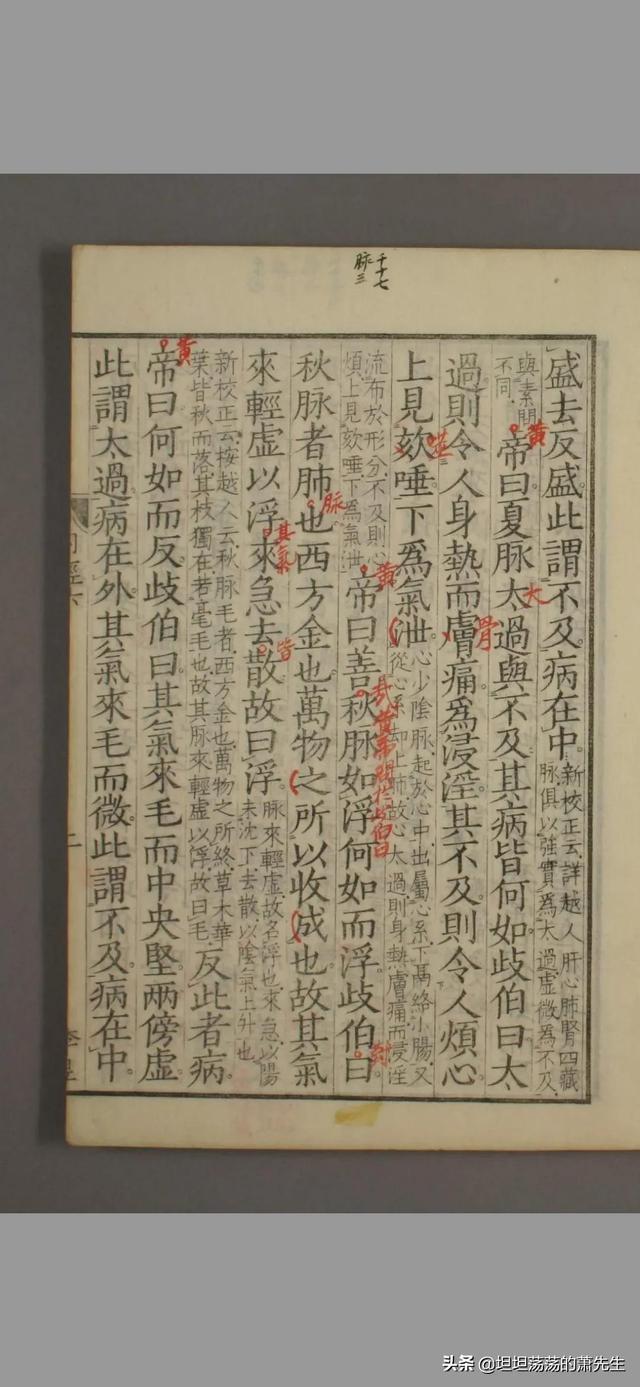 千十七
脉三
盛去反盛此謂不及病在中新校正云詳越人肝心肺腎四藏
脉俱以強實爲太過虛微爲不及
與素問
不同
帝曰夏脉太過與不及其病皆何如歧伯曰太
過則令人身熱而膚痛爲浸淫其不及則令人煩心
上見欬唾下爲氣泄心少陰脉起於心中出屬心系下鬲絡小腸又
從心系却上肺故心太過則身熱膚痛而浸淫
流布於形分不及則心
煩上見欬唾下爲氣泄
帝曰善秋脉如浮何如而浮歧伯曰
秋脉者肺也西方金也萬物之所以收成也故其氣
來輕虛以浮來急去散故曰浮脉來輕虛故名浮也來急以陽
未沈下去散以陰氣上升也
新校正云按越人云秋脉毛者西方金也萬物之所終草木華
葉皆秋而落其枝獨在若毫毛也故其脉來輕虛以浮故曰毛
反此者病
帝曰何如而反歧伯曰其氣來毛而中央堅兩傍虛
此謂太過病在外其氣來毛而微此謂不及病在中
黃
大
骨
黃
脉
其氣
皆
黃
頭条 @坦坦荡荡的萧先生